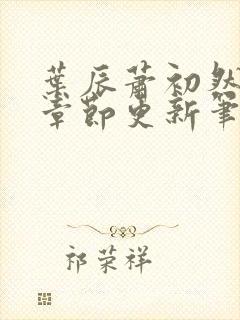 葉辰蕭初然
章節更新筆
祁荣祥